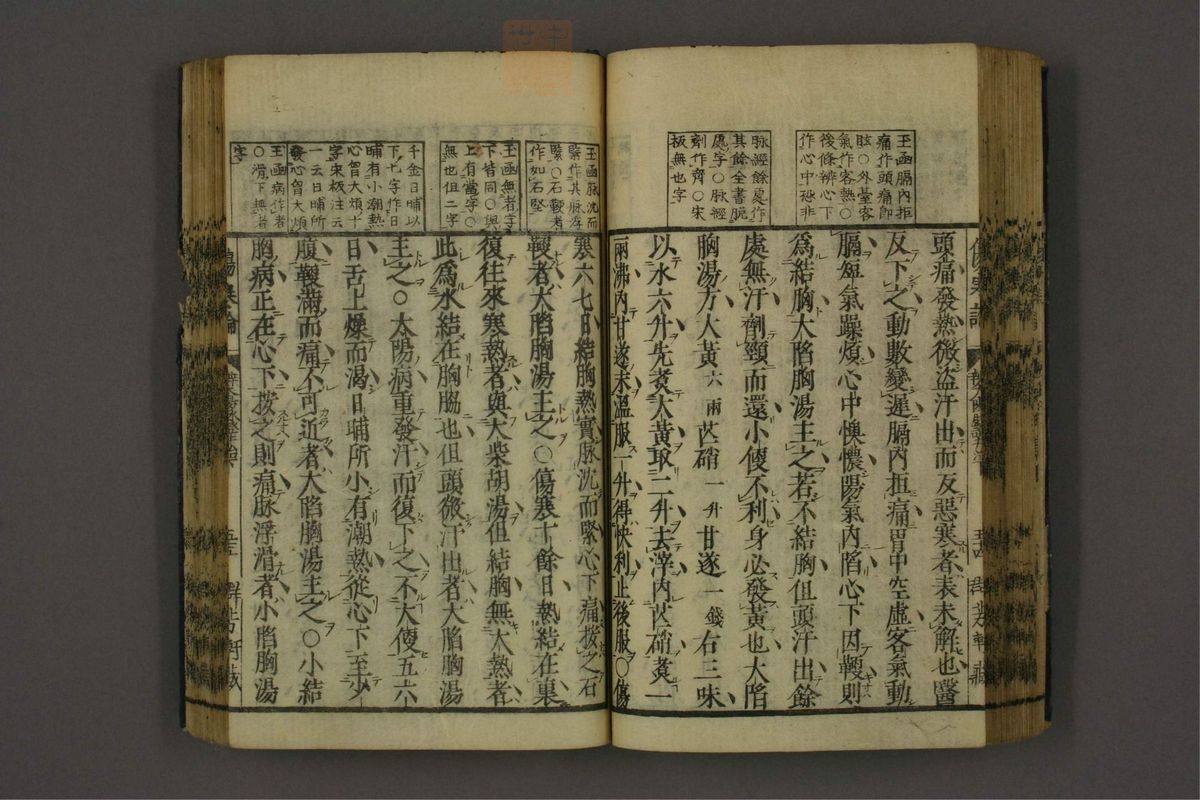 玉函膈內拒
痛作頭痛卽
眩〇外臺客
氣作客熱〇
後條辨心下
作心中恐非
脉經餘處作
其餘全書脫
處字〇脉經
劑作齊〇宋
板無也字
頭痛發熱微盜汗出而反惡寒者表未解也醫
反下之動數變遲膈內拒痛胃中空虛客氣動
膈短氣躁煩心中懊憹陽氣內陷心下因鞕則
爲結胸大陷胸湯主之若不結胸但頭汗出餘
處無汗劑頸而還小便不利身必發黃也大陷
胸湯方大黃六兩芒硝一升甘遂一錢右三味
以水六升先煮大黃取二升去滓內芒硝煮一
兩沸內甘遂末溫服一升得快利止後服〇傷
玉函脉沈而
緊作其脉浮
緊〇石鞕者
作如石堅
玉函無者字
下皆同〇與
上有當字〇
無也但二字
千金日晡以
下七字作日
晡有小潮熱
心胷大煩十
字宋板注云
一云日晡所
發心胷大煩
玉函病作者
〇滑下無者
字
寒六七日結胸熱實脉沈而緊心下痛按之石
鞕者大陷胸湯主之〇傷寒十餘日熱結在裏
復往來寒熱者與大柴胡湯但結胸無大熱者
此爲水結在胸脇也但頭微汗出者大陷胸湯
主之〇太陽病重發汗而復下之不大便五六
日舌上燥而渴日晡所小有潮熱從心下至少
腹鞕滿而痛不可近者大陷胸湯主之〇小結
胸病正在心下按之則痛脉浮滑者小陷胸湯